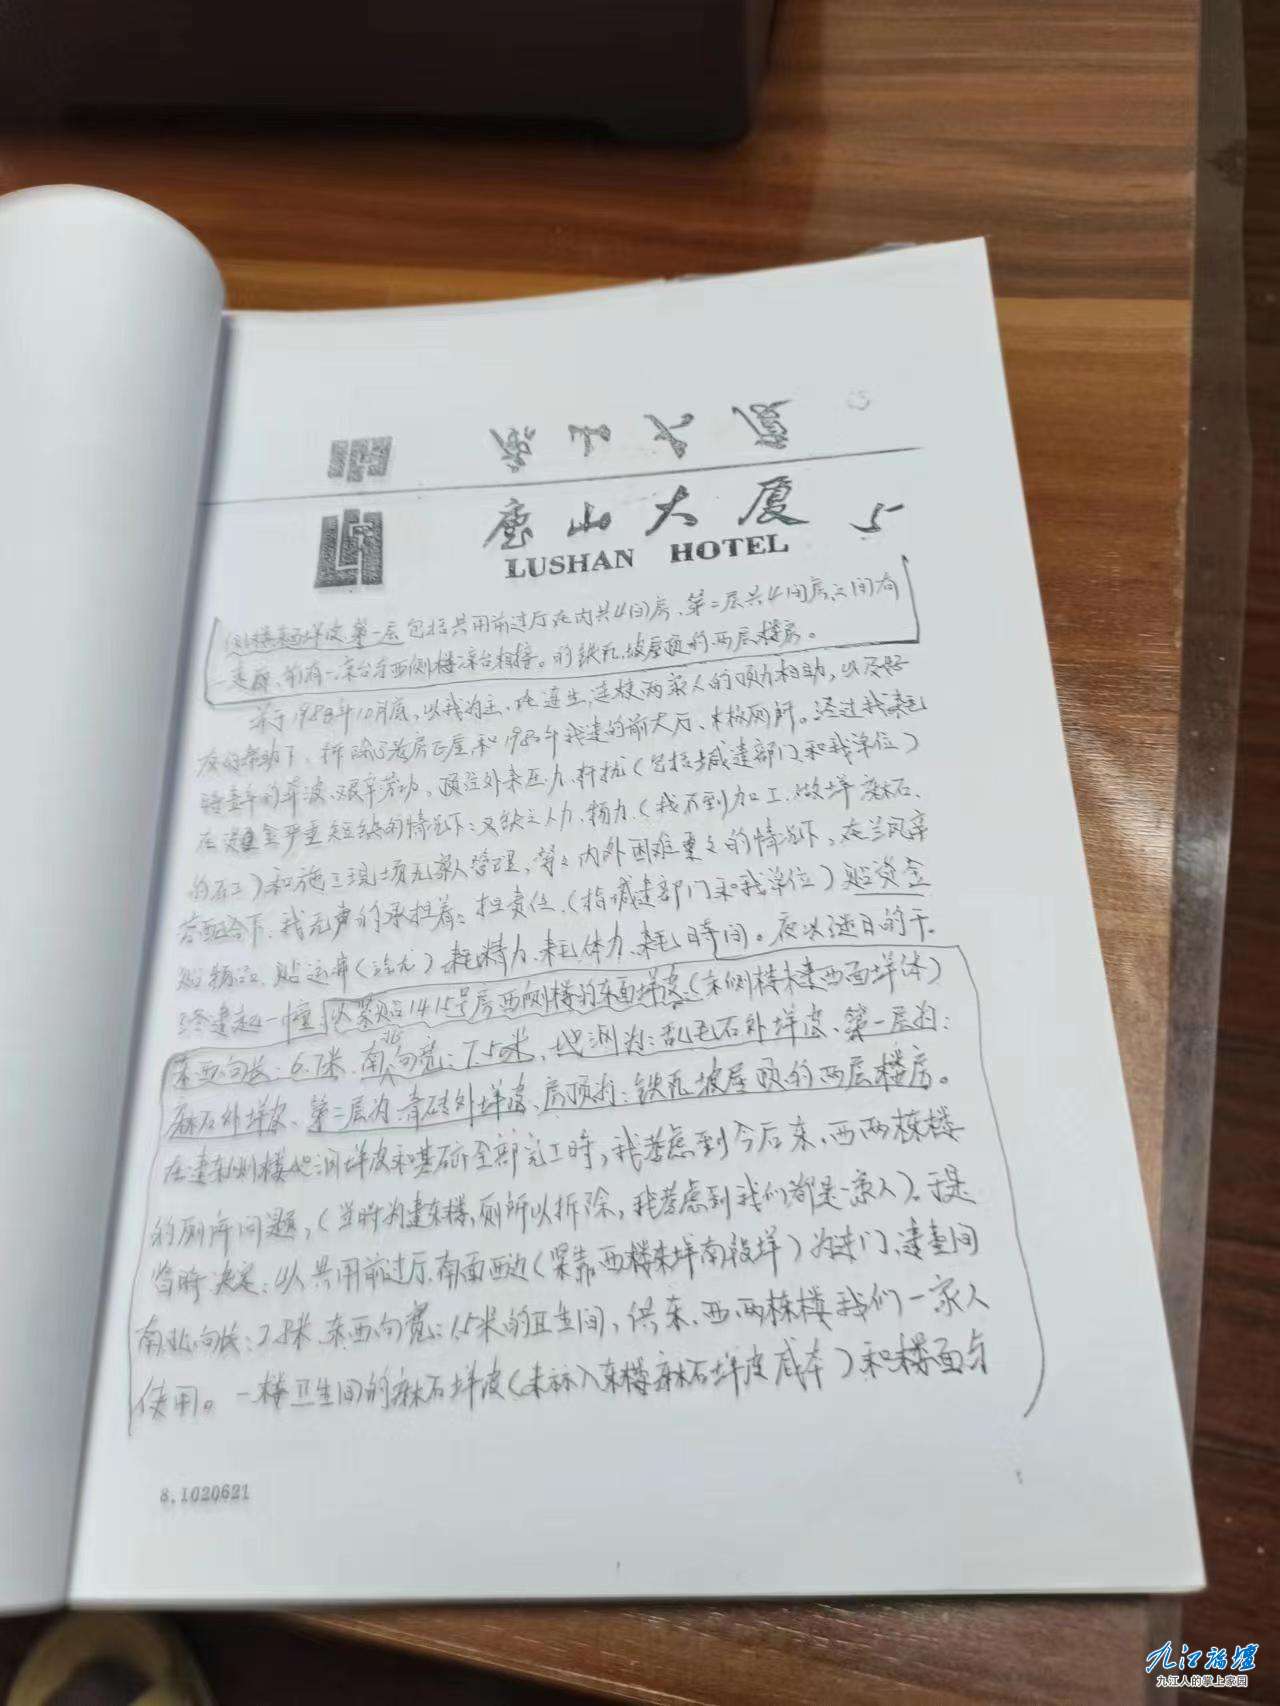 庐山大厦 5
LUSHAN HOTEL
侧楼东面垟皮,第一层包括共用前过厅在内共4间房、第二层共4间房,之间有
一走廊、前有一凉台与西侧楼凉台相接。的铁瓦坡屋顶的两层楼房。
1988年10月底,以我为主,在连生,连枝两家人的顶力相助,以及好
友的帮助下,拆除房正屋和我建的前大厅、木板厕所。经过我耗
的奔波、艰辛劳动,顶住外来压力、干扰(包括城建部门和我单位)
在资金严重短缺的情况下:又缺乏人力、物力(找不到加工、做垟麻石、
的石工)和施工现场无亲人管理,等之内外困难重之的情况下,在兰凤辛
苦配合下,我无声的承担着:担责任、(指城建部门和我单位)贴资金
贴物品、贴运费耗精力、耗体力、耗时间。夜以继日的干。
建起一幢以紧贴1415号房西侧楼的东面垟皮(东侧楼未建西面垟体)
东西向长:6.7米、南北向宽:7.50米,地洞为:乱毛石外垟皮、第一层为:
麻石外垟皮、第二层为:青砖外垟皮、房顶为:铁瓦坡屋顶的两层楼房。
在建东侧楼地洞垟皮和基础全部完工时,我考虑到今后东、西两栋楼
的厕所问题,(当时为建东楼,厕所以拆除,我考虑到我们都是一家人)。于是
当时决定:以共用前过厅、南面西边(紧靠西楼东垟南段垟)为进门,建壹间
南北向长:2.8米、东西向宽:1.5米的卫生间,供东、西、两栋楼我们一家人
使用。一楼卫生间的麻石垟皮(未嵌入东楼麻石垟皮)和楼面与
8.1020621
九江论坛
九江人的掌上家园